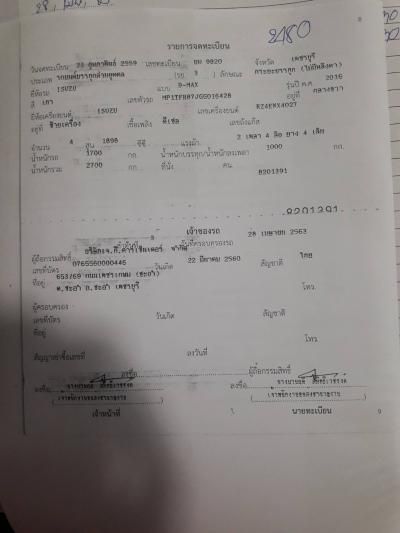 2480
8
รายการจดทะเบียน
วันจดทะเบียน 23 กุมภาพันธ์ 2559 เลขทะเบียน ยม 9820 จังหวัด เพชรบุรี
ประเภท รถยนต์บรรทุกส่วนบุคคล (รย. 3 ) ลักษณะ กระบะบรรทุก (ไม่มีหลังคา)
ยี่ห้อรถ ISUZU แบบ D-MAX รุ่นปี ค.ศ. 2016
สี เทา เลขตัวรถ MP1TFR87JGG016428 อยู่ที่ กลางขวา
ยี่ห้อเครื่องยนต์ ISUZU เลขเครื่องยนต์ RZ4ENX4027
อยู่ที่ ซ้ายเครื่อง เชื้อเพลิง ดีเซล เลขถังแก๊ส
จำนวน 4 สูบ 1898 ซีซี แรงม้า 2 เพลา 4 ล้อ ยาง 4 เส้น
น้ำหนักรถ 1700 กก. น้ำหนักบรรทุก/น้ำหนักลงเพลา 1000 กก.
น้ำหนักรวม 2700 กก. ที่นั่ง คน
8201391
8201391
เจ้าของรถ
วันที่ครอบครองรถ 28 เมษายน 2563
ผู้ถือกรรมสิทธิ์ จำกัด
เลขที่บัตร 0765560000446 วันเกิด 22 มีนาคม 2560 สัญชาติ ไทย
ที่อยู่ 653/69 ถนนเพชรเกษม (ชะอำ)
ต.ชะอำ อ.ชะอำ เพชรบุรี โทร.
ผู้ครอบครอง
เลขที่บัตร วันเกิด สัญชาติ
ที่อยู่
โทร.
สัญญาเช่าซื้อเลขที่ ลงวันที่
ลงชื่อ ผู้ถือกรรมสิทธิ์
ลงชื่อ ลงชื่อ
เจ้าหน้าที่ นายทะเบียน 9